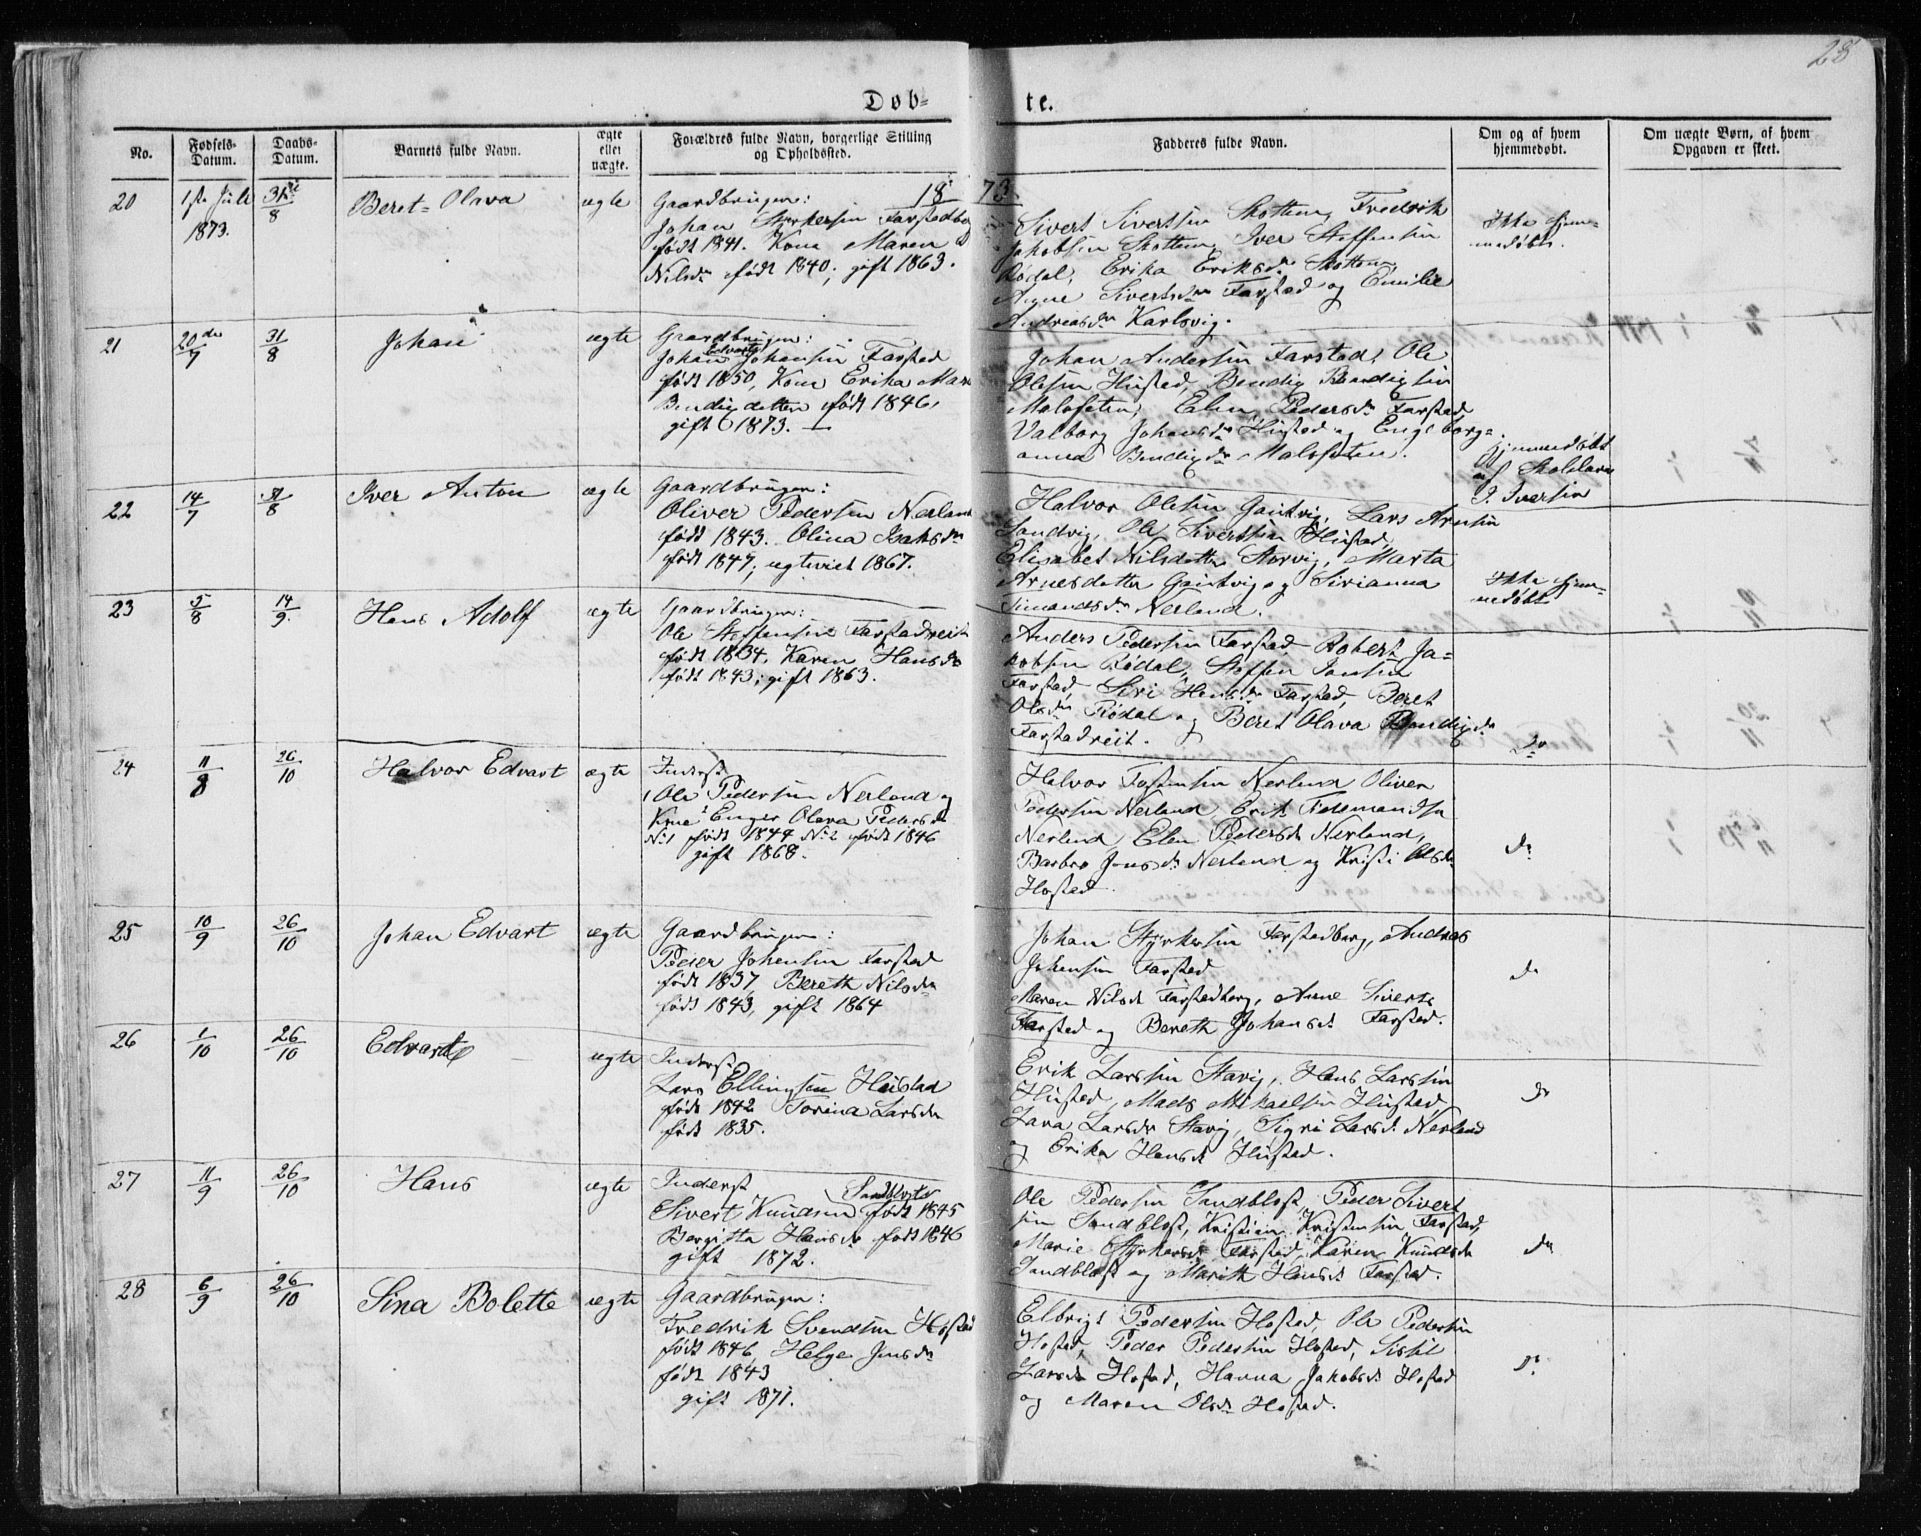 28
Døb- te.
No. Fødsels-Datum. Daabs-Datum. Barnets fulde Navn. ægte eller uægte. Forældres fulde Navn, borgerlige Stilling og Opholdssted. Fadderes fulde Navn. Om og af hvem hjemmedøbt. Om uægte Børn, af hvem Opgaven er skeet.
1873
20 1ste Juli 1873. 31/8 Beret-Olava ægte
Gaardbruger:
Johan Styrkersen Farstadberg
født 1841. Kone Maren
Nilsdr født 1840; gift 1863.
Sivert Sivertsen Skottem, Fredrik
Jakobsen Skottem, Iver Steffensen
Rødal, Erika Eriksdr Skottem,
Anne Sivertsdr Farstad og Emilie
Andreasdr Karlsvig.
Ikke hjem-
medøbt.
21 20de/7 31/8 Johan ægte
Gaardbruger:
Johan Edvart Johansen Farstad
født 1850, Kone Erika Mar
Bendigsdatter født 1846,
gift 1873.
Johan Andersen Farstad, Ole
Olesen Hustad, Bendig Bendigsen
Malefeten, Elen Pedersdr Farstad
Valborg Johansdr Hustad og Engeborg-
anna Bendigsdr Malefeten.
Hjemmedøbt
af Skolelærer
P. Iversen
22 14/7 31/8 Iver Anton ægte
Gaardbruger:
Oliver Pedersen Nerland
født 1843. Olina Isaksdr
født 1847, egteviet 1867.
Halvor Olesen Gautvig, Lars Arnsen
Sandvig, Ole Sivertsen Hustad,
Elisabet Nilsdatter Storvig, Marta
Arnesdatter Gautvig og Sirianna
Simonsdr Nerland.
Ikke hjem-
medøbt
23 5/8 14/9. Hans Adolf ægte
Gaardbruger:
Ole Steffensen Farstadreit
født 1834, Karen Hansdr
født 1843; gift 1863.
Anders Pedersen Farstad Robert Ja-
kobsen Rødal, Steffen Jonsen
Farstad, Siri Hansdr Farstad, Beret
Olsdr Rødal og Beret Olava Bendigsdr
Farstadreit.
Do
24 11/8 26/10 Halvor Edvart ægte
Inderst
1 Ole Pedersen Nerland og
Kone 2 Enger Olava Pedersdr
No 1 født 1844 No 2 født 1846
gift 1868.
Halvor Tostensen Nerland Oliver
Pedersen Nerland Erik Tideman
Nerland Elen Pedersdr Nerland,
Barbro Jonsdr Nerland og Kristi Olsdr
Hostad
do
25 10/9 26/10 Johan Edvart ægte
Gaardbruger:
Peder Johansen Farstad
født 1837 Bereth Nilsdr
født 1843, gift 1864
Johan Styrkersen Farstadberg, Andreas
Johansen Farstad
Maren Nilsdr Farstadberg, Anne Siverts
Farstad og Bereth Johansdr Farstad.
do
26 1/10 26/10 Edvard ægte
Inderst
Lars Ellingsen Hustad
født 1842 Torina Larsdr
født 1835.
Erik Larssen Stavig, Hans Larssen
Hustad, Mads Mikaelsen Hustad
Lava Larsdr Stavig, Sigri Larsdr Nerland
og Erika Hansdr Hustad.
do
27 11/9 26/10 Hans ægte
Inderst Sandblost
Sivert Knudsen født 1845
Bergitta Hansdr født 1846
gift 1872.
Ole Pedersen Sandblost, Peder Sivert
sen Sandblost, Kristian Kristensen Farstad,
Marie Styrkersdr Farstad, Karen Knudsdr
Sandblost og Marith Hansdr Farstad.
do
28 6/9 26/10 Sina Bolette ægte
Gaardbruger:
Fredrik Svendsen Hostad
født 1846, Helge Jensdr
født 1843
gift 1871.
Elbrigt Pedersen Hostad, Ole Pedersen
Hostad, Peder Pedersen Hostad, Sisil
Larsdr Hostad, Hanna Jakobsdr Hostad
og Maren Olsdr Hostad.
do